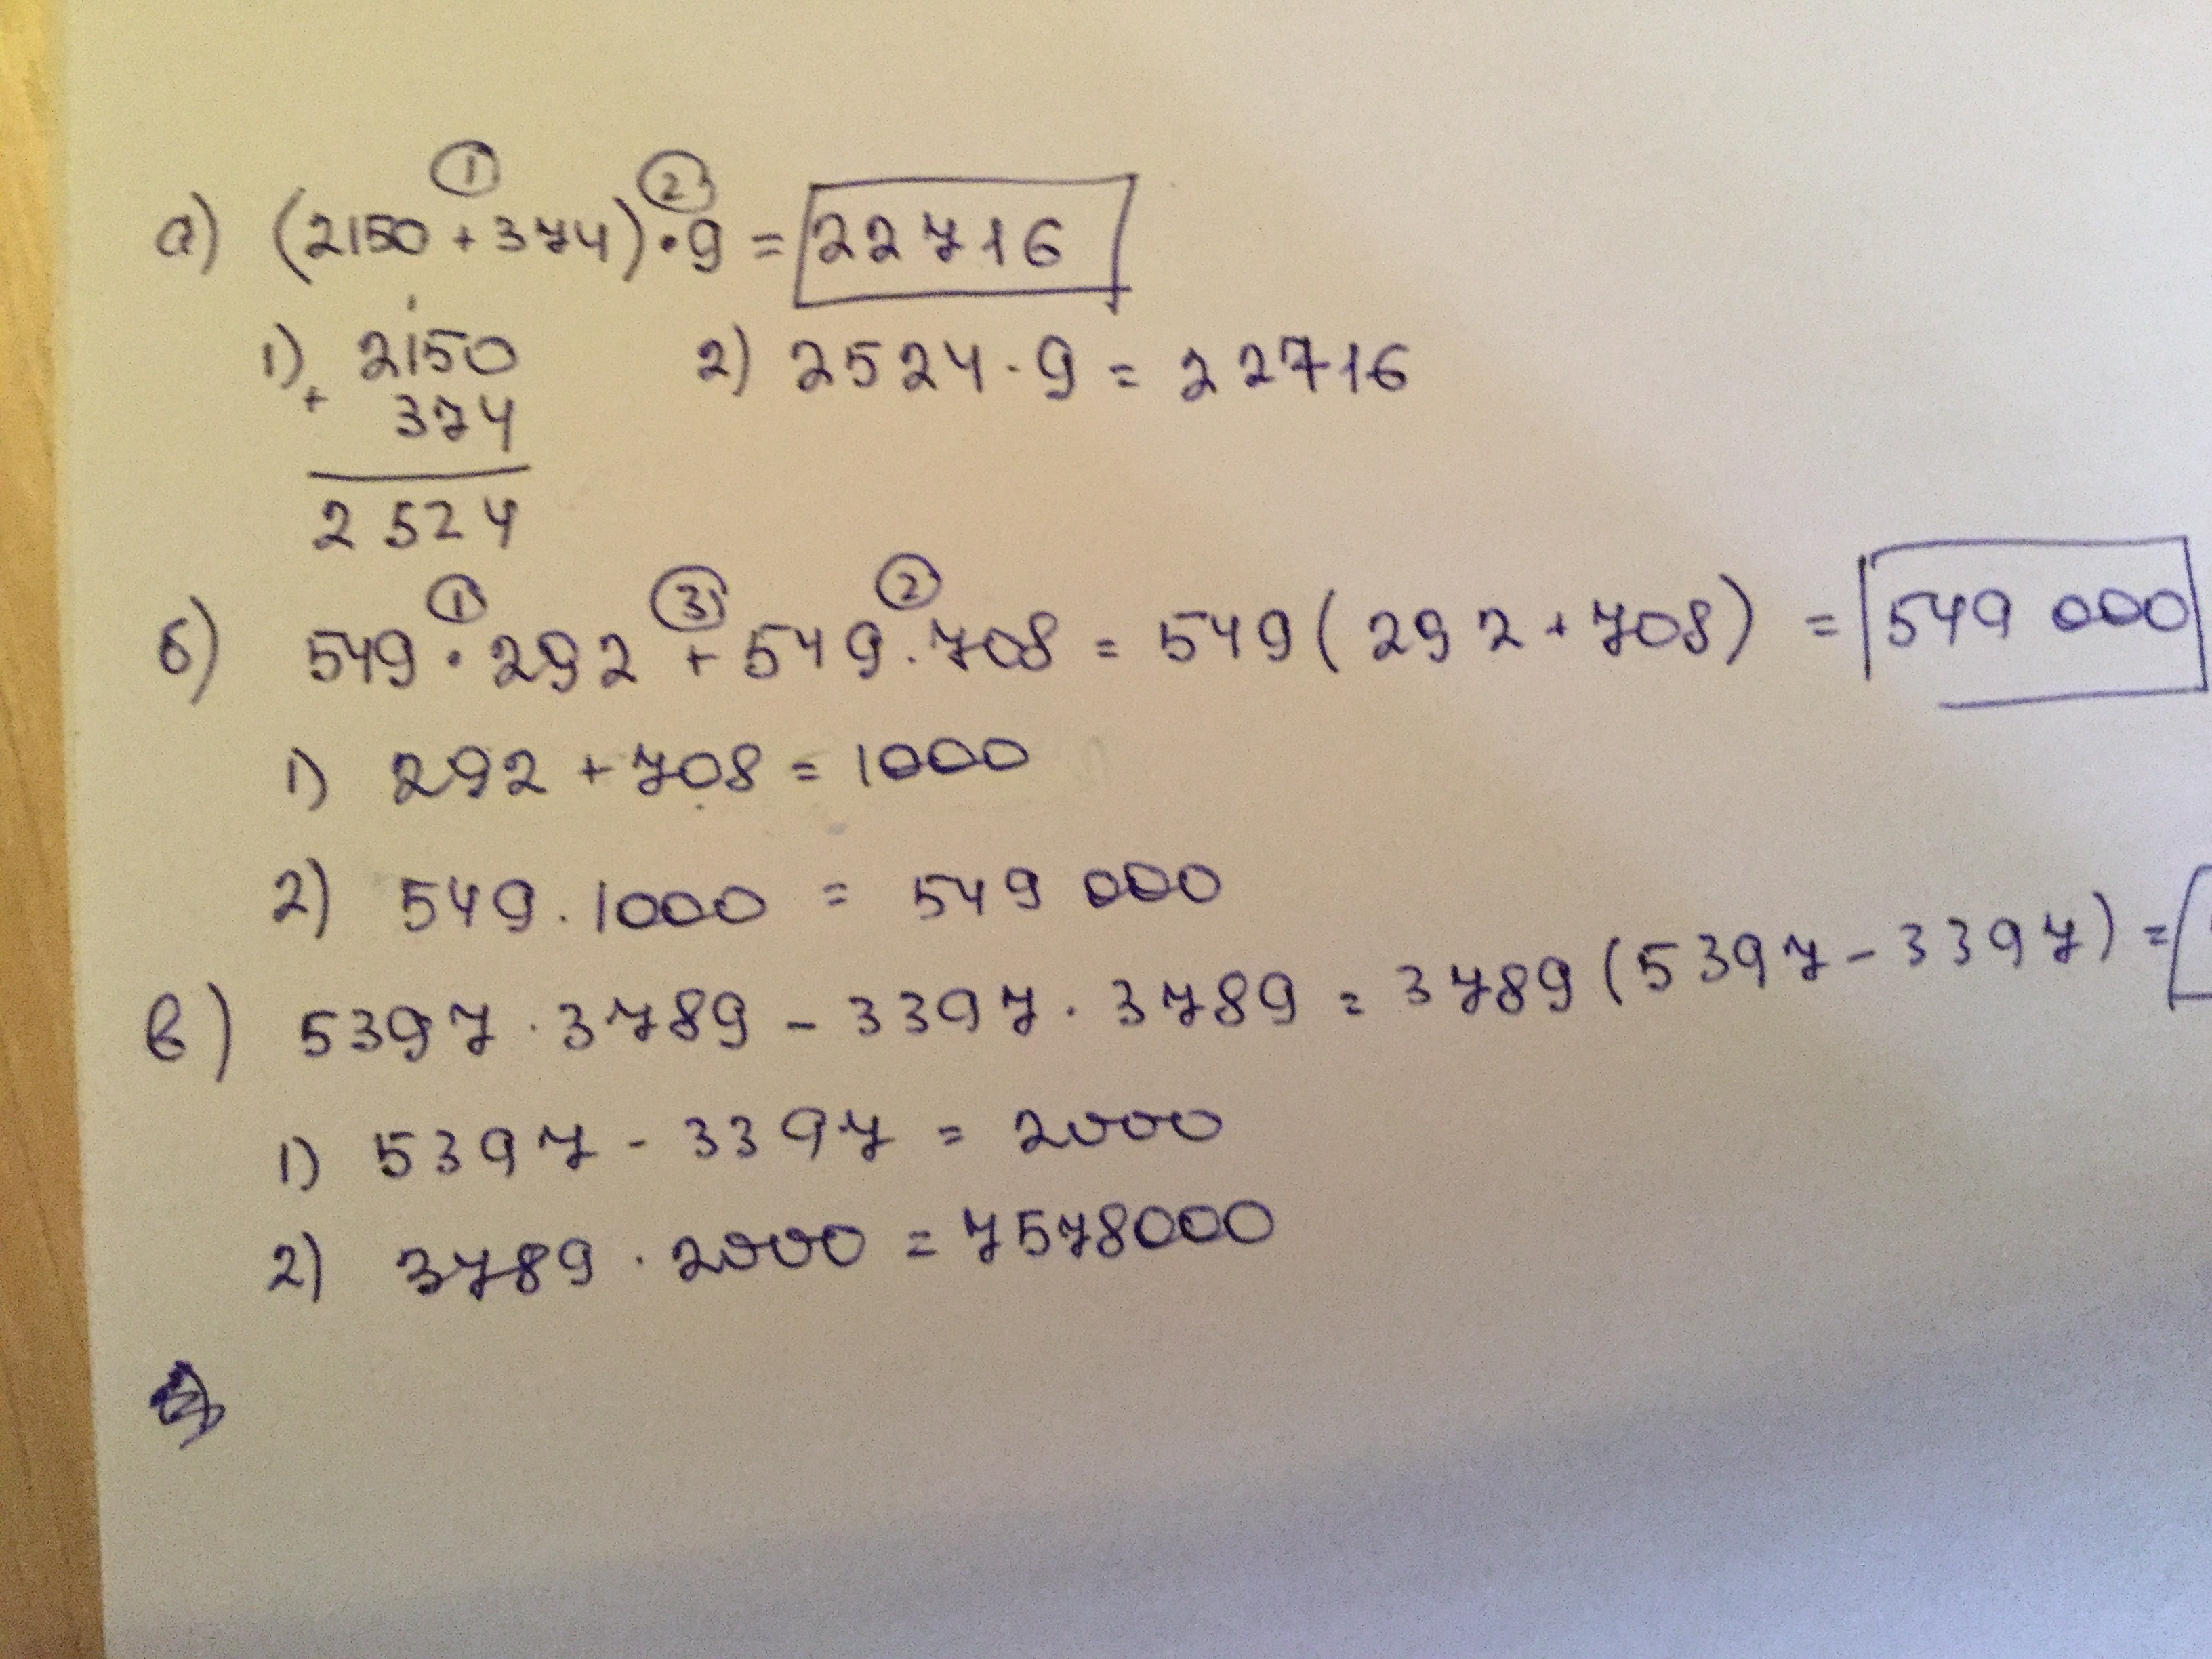 ① ②
а) (2150 + 374) · 9 = 22716
1) 2150 2) 2524 · 9 = 22716
+ 374
2524
① ③ ②
б) 549 · 292 + 549 · 708 = 549 (292 + 708) = 549 000
1) 292 + 708 = 1000
2) 549 · 1000 = 549 000
в) 5397 · 3789 - 3397 · 3789 = 3789 (5397 - 3397) =
1) 5397 - 3397 = 2000
2) 3789 · 2000 = 7578000